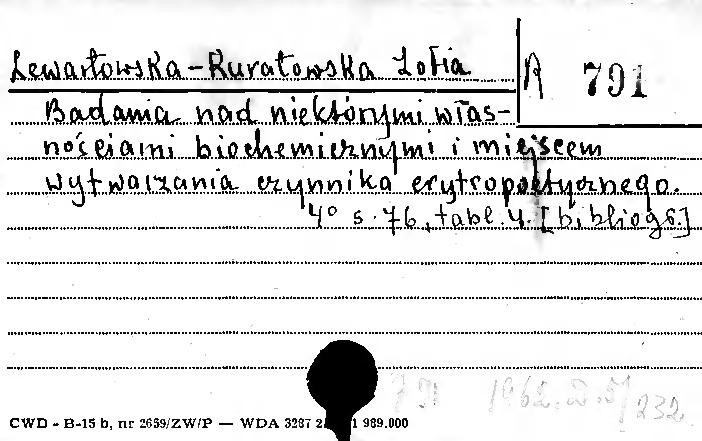 Lewartowska-Kuratowska Zofia
R 791
Badania nad niektórymi włas-
nościami biochemicznymi i miejscem
wytwarzania czynnika erytropoetycznego.
4° s. 76, tabl. 4. [bibliogr.]
791 1962. D. 5/232
CWD - B-15 b, nr 2659/ZW/P — WDA 3287 1 989.000